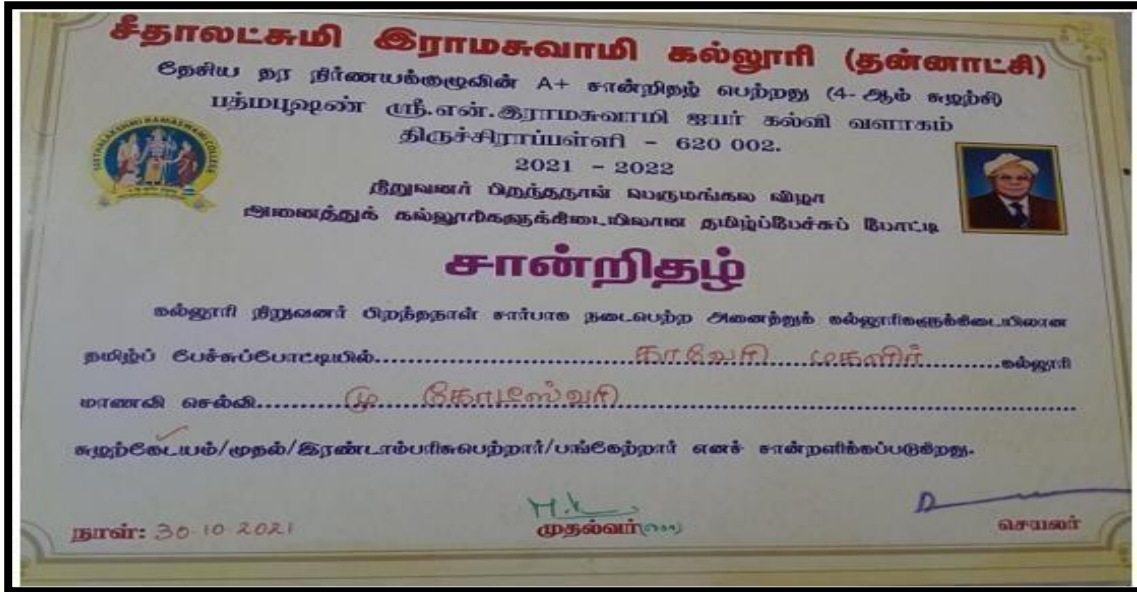 சீதாலட்சுமி இராமசுவாமி கல்லூரி (தன்னாட்சி)
தேசிய தர நிர்ணயக்குழுவின் A+ சான்றிதழ் பெற்றது (4-ஆம் சுழற்சி)
பத்மபூஷண் ஸ்ரீ.என்.இராமசுவாமி ஐயர் கல்வி வளாகம்
திருச்சிராப்பள்ளி - 620 002.
2021 - 2022
SEETHALAKSHMI RAMASWAMI COLLEGE
நிறுவனர் பிறந்தநாள் பெருமங்கல விழா
அனைத்துக் கல்லூரிகளுக்கிடையிலான தமிழ்ப்பேச்சுப் போட்டி
சான்றிதழ்
கல்லூரி நிறுவனர் பிறந்தநாள் சார்பாக நடைபெற்ற அனைத்துக் கல்லூரிகளுக்கிடையிலான
தமிழ்ப் பேச்சுப்போட்டியில்.......காவேரி மகளிர்.......கல்லூரி
மாணவி செல்வி.......மு கோடீஸ்வரி.......
சுழற்கேடயம்/முதல்/இரண்டாம்பரிசுபெற்றார்/பங்கேற்றார் எனச் சான்றளிக்கப்படுகிறது.
நாள்: 30-10-2021
முதல்வர்
செயலர்